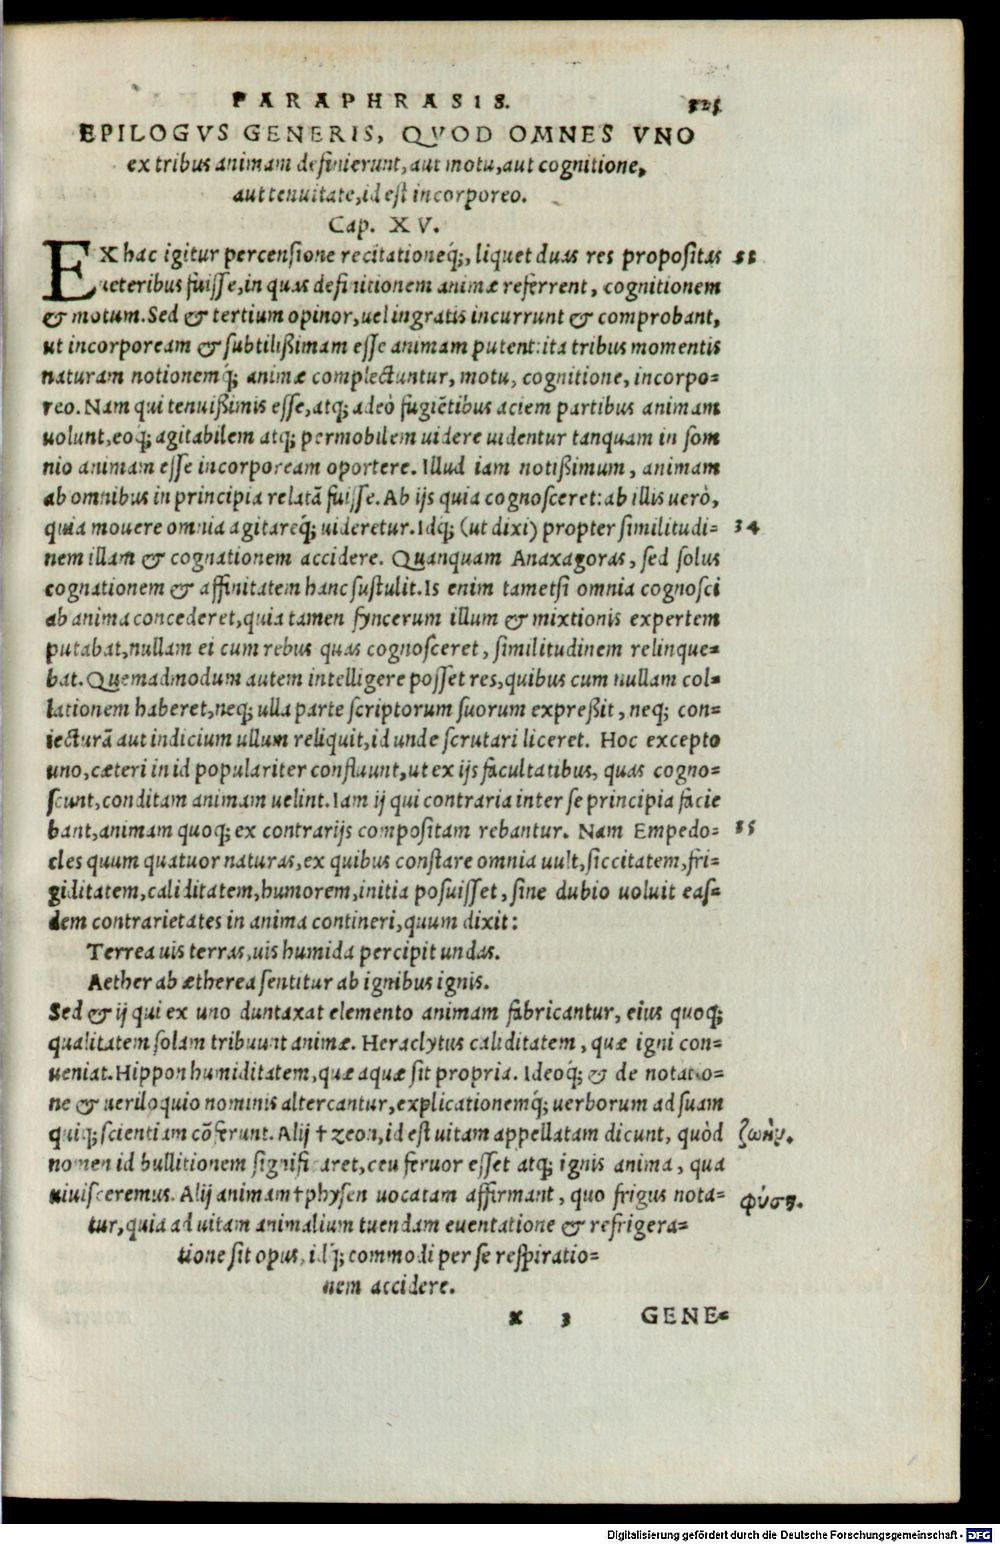 PARAPHRASIS. 325
EPILOGVS GENERIS, QVOD OMNES VNO
ex tribus animam definierunt, aut motu, aut cognitione,
aut tenuitate, id est incorporeo.
Cap. XV.
EX hac igitur percensione recitationeq́;, liquet duas res propositas 33
ueteribus fuisse, in quas definitionem animæ referrent, cognitionem
& motum. Sed & tertium opinor, uel ingratis incurrunt & comprobant,
ut incorpoream & subtilißimam esse animam putent: ita tribus momentis
naturam notionemq́; animæ complectuntur, motu, cognitione, incorpo=
reo. Nam qui tenuißimis esse, atq; adeò fugiẽtibus aciem partibus animam
uolunt, eoq́; agitabilem atq; permobilem uidere uidentur tanquam in som
nio animam esse incorpoream oportere. Illud iam notißimum, animam
ab omnibus in principia relatã fuisse. Ab ijs quia cognosceret: ab illis uerò,
quia mouere omnia agitareq́; uideretur. Idq́; (ut dixi) propter similitudi= 34
nem illam & cognationem accidere. Quanquam Anaxagoras, sed solus
cognationem & affinitatem hanc sustulit. Is enim tametsi omnia cognosci
ab anima concederet, quia tamen syncerum illum & mixtionis expertem
putabat, nullam ei cum rebus quas cognosceret, similitudinem relinque=
bat. Quemadmodum autem intelligere posset res, quibus cum nullam col=
lationem haberet, neq; ulla parte scriptorum suorum expreßit, neq; con=
iecturã aut indicium ullum reliquit, id unde scrutari liceret. Hoc excepto
uno, cæteri in id populariter confluunt, ut ex ijs facultatibus, quas cogno=
scunt, conditam animam uelint. Iam ij qui contraria inter se principia facie
bant, animam quoq; ex contrarijs compositam rebantur. Nam Empedo= 35
cles quum quatuor naturas, ex quibus constare omnia uult, siccitatem, fri=
giditatem, caliditatem, humorem, initia posuisset, sine dubio uoluit eas=
dem contrarietates in anima contineri, quum dixit:
Terrea uis terras, uis humida percipit undas.
Aether ab ætherea sentitur ab ignibus ignis.
Sed & ij qui ex uno duntaxat elemento animam fabricantur, eius quoq;
qualitatem solam tribuunt animæ. Heraclytus caliditatem, quæ igni con=
ueniat. Hippon humiditatem, quæ aquæ sit propria. Ideoq́; & de notatio=
ne & ueriloquio nominis altercantur, explicationemq́; uerborum ad suam
quiq; scientiam cõferunt. Alij † zeon, id est uitam appellatam dicunt, quòd ζωὴν.
nomen id bullitionem significaret, ceu feruor esset atq; ignis anima, qua
uiuisceremus. Alij animam † physen uocatam affirmant, quo frigus nota= φύση.
tur, quia ad uitam animalium tuendam euentatione & refrigera=
tione sit opus, idq́; commodi per se respiratio=
nem accidere.
x 3 GENE=
Digitalisierung gefördert durch die Deutsche Forschungsgemeinschaft - DFG